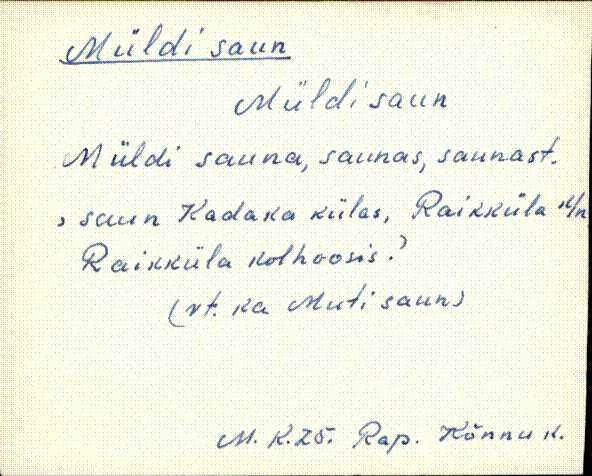 Müldi saun
Müldi saun
Müldi sauna, saunas, saunast.
, saun Kadaka külas, Raikküla k/n
Raikküla kolhoosis.'
(vt. ka Muti saun)
M. K. 25. Rap. Kõnnu k.